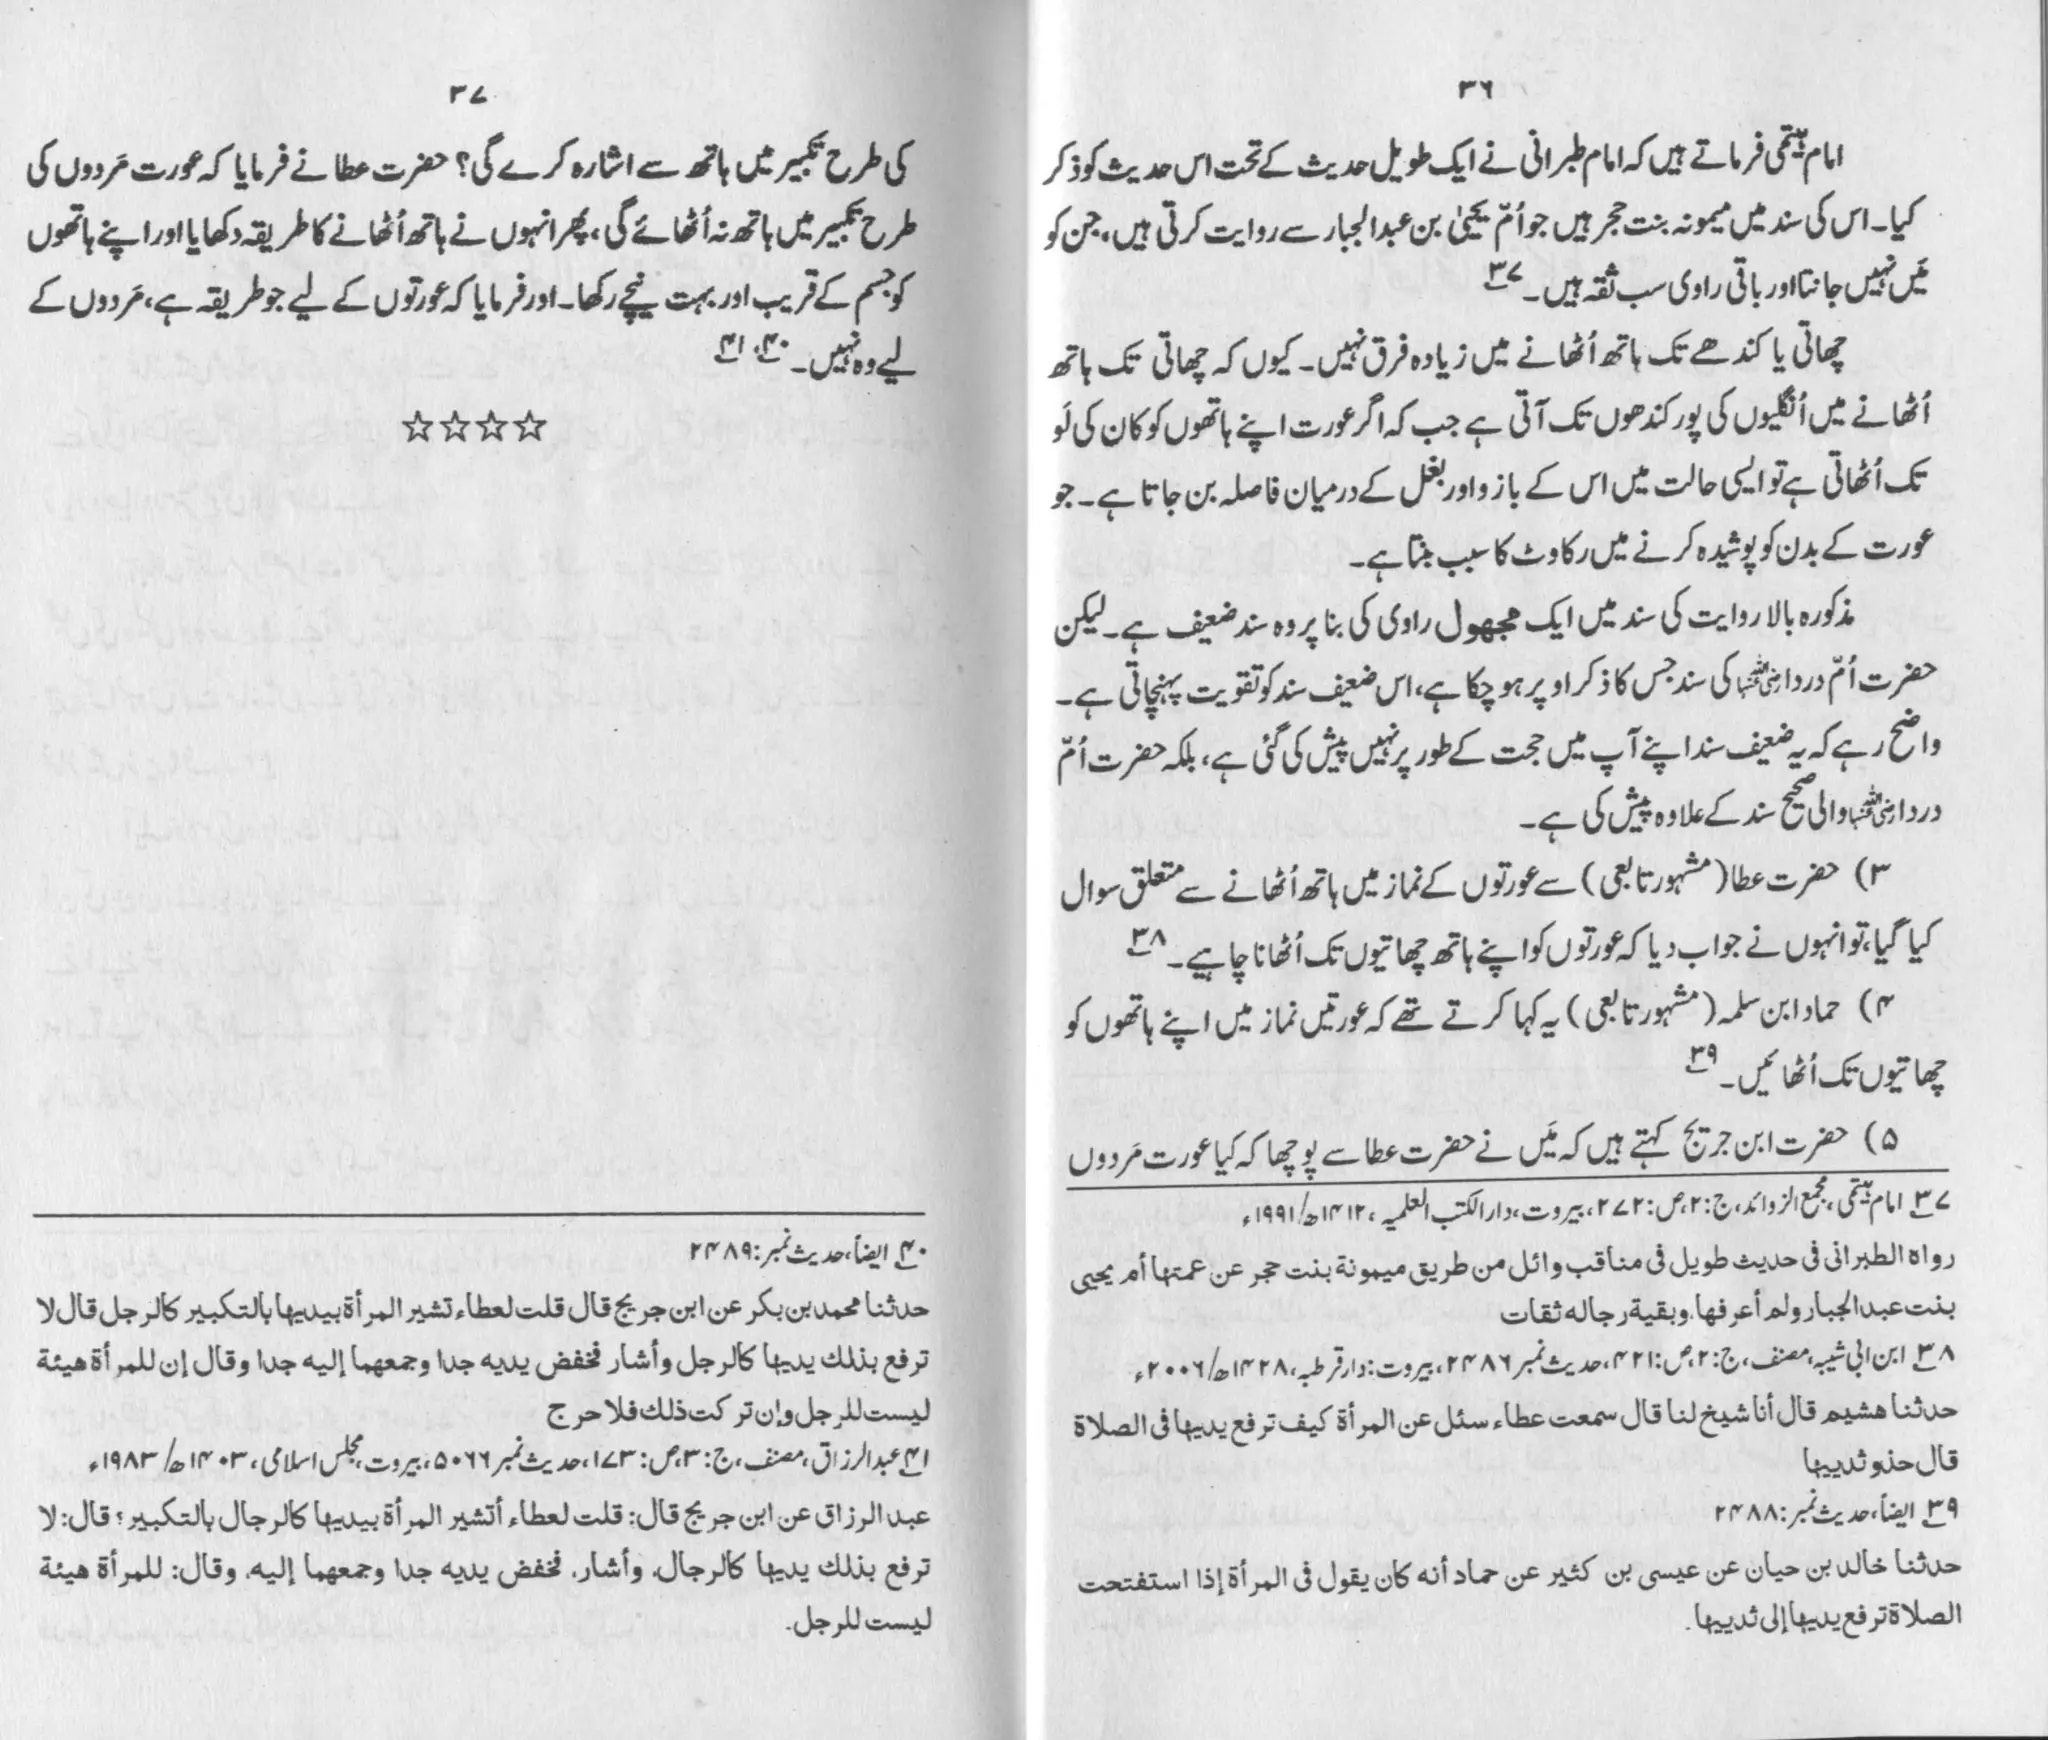 ۳۶
امام ہیثمی فرماتے ہیں کہ امام طبرانی نے ایک طویل حدیث کے تحت اس حدیث کو ذکر
کیا۔ اس کی سند میں میمونہ بنت حجر ہیں جو اُمّ یحییٰ بن عبدالجبار سے روایت کرتی ہیں، جن کو
مَیں نہیں جانتا اور باقی راوی سب ثقہ ہیں۔ ۳۷
چھاتی یا کندھے تک ہاتھ اُٹھانے میں زیادہ فرق نہیں۔ کیوں کہ چھاتی تک ہاتھ
اُٹھانے میں اُنگلیوں کی پور کندھوں تک آتی ہے جب کہ اگر عورت اپنے ہاتھوں کو کان کی لَو
تک اُٹھاتی ہے تو ایسی حالت میں اس کے بازو اور بغل کے درمیان فاصلہ بن جاتا ہے۔ جو
عورت کے بدن کو پوشیدہ کرنے میں رکاوٹ کا سبب بنتا ہے۔
مذکورہ بالا روایت کی سند میں ایک مجھول راوی کی بنا پر وہ سند ضعیف ہے۔ لیکن
حضرت اُمّ دردا رضی اللہ عنہا کی سند جس کا ذکر اوپر ہو چکا ہے، اس ضعیف سند کو تقویت پہنچاتی ہے۔
واضح رہے کہ یہ ضعیف سند اپنے آپ میں حجت کے طور پر نہیں پیش کی گئی ہے، بلکہ حضرت اُمّ
دردا رضی اللہ عنہا والی صحیح سند کے علاوہ پیش کی ہے۔
۳) حضرت عطا (مشہور تابعی) سے عورتوں کے نماز میں ہاتھ اُٹھانے سے متعلق سوال
کیا گیا، تو انہوں نے جواب دیا کہ عورتوں کو اپنے ہاتھ چھاتیوں تک اُٹھانا چاہیے۔ ۳۸
۴) حماد ابن سلمہ (مشہور تابعی) یہ کہا کرتے تھے کہ عورتیں نماز میں اپنے ہاتھوں کو
چھاتیوں تک اُٹھائیں۔ ۳۹
۵) حضرت ابن جریج کہتے ہیں کہ مَیں نے حضرت عطا سے پوچھا کہ کیا عورت مَردوں
۳۷ امام ہیثمی، مجمع الزوائد، ج:۲، ص:۲۷۲، بیروت، دارالکتب العلمیہ، ۱۴۱۲ھ/۱۹۹۱ء
رواہ الطبرانی فی حدیث طویل فی مناقب وائل من طریق میمونة بنت حجر عن عمتھا أم یحیی
بنت عبدالجبار ولم أعرفھا، وبقیة رجاله ثقات
۳۸ ابن ابی شیبہ، مصنف، ج:۲، ص:۴۲۱، حدیث نمبر ۲۴۸۶، بیروت: دار قرطبہ، ۱۴۲۸ھ/۲۰۰۶ء
حدثنا هشیم قال أنا شیخ لنا قال سمعت عطاء سئل عن المرأة کیف ترفع یدیها فی الصلاة
قال حذو ثدییها
۳۹ ایضاً، حدیث نمبر: ۲۴۸۸
حدثنا خالد بن حیان عن عیسی بن کثیر عن حماد أنه کان یقول فی المرأة إذا استفتحت
الصلاة ترفع یدیها إلی ثدییها۔
۳۷
کی طرح تکبیر میں ہاتھ سے اشارہ کرے گی؟ حضرت عطا نے فرمایا کہ عورت مَردوں کی
طرح تکبیر میں ہاتھ نہ اُٹھائے گی، پھر انہوں نے ہاتھ اُٹھانے کا طریقہ دکھایا اور اپنے ہاتھوں
کو جسم کے قریب اور بہت نیچے رکھا۔ اور فرمایا کہ عورتوں کے لیے جو طریقہ ہے، مَردوں کے
لیے وہ نہیں۔ ۴۰، ۴۱
☆☆☆☆
۴۰ ایضاً، حدیث نمبر: ۲۴۸۹
حدثنا محمد بن بکر عن ابن جریج قال قلت لعطاء تشیر المرأة بیدیها بالتکبیر کالرجل قال لا
ترفع بذلك یدیها کالرجل وأشار فخفض یدیه جدا وجمعهما إلیه جدا وقال إن للمرأة هیئة
لیست للرجل وإن ترکت ذلك فلا حرج
۴۱ عبدالرزاق، مصنف، ج:۳، ص:۱۷۳، حدیث نمبر ۵۰۶۶، بیروت، مجلس اسلامی، ۱۴۰۳ھ/۱۹۸۳ء
عبد الرزاق عن ابن جریج قال: قلت لعطاء أتشیر المرأة بیدیها کالرجال بالتکبیر؟ قال: لا
ترفع بذلك یدیها کالرجال، وأشار، فخفض یدیه جدا وجمعهما إلیه، وقال: للمرأة هیئة
لیست للرجل۔